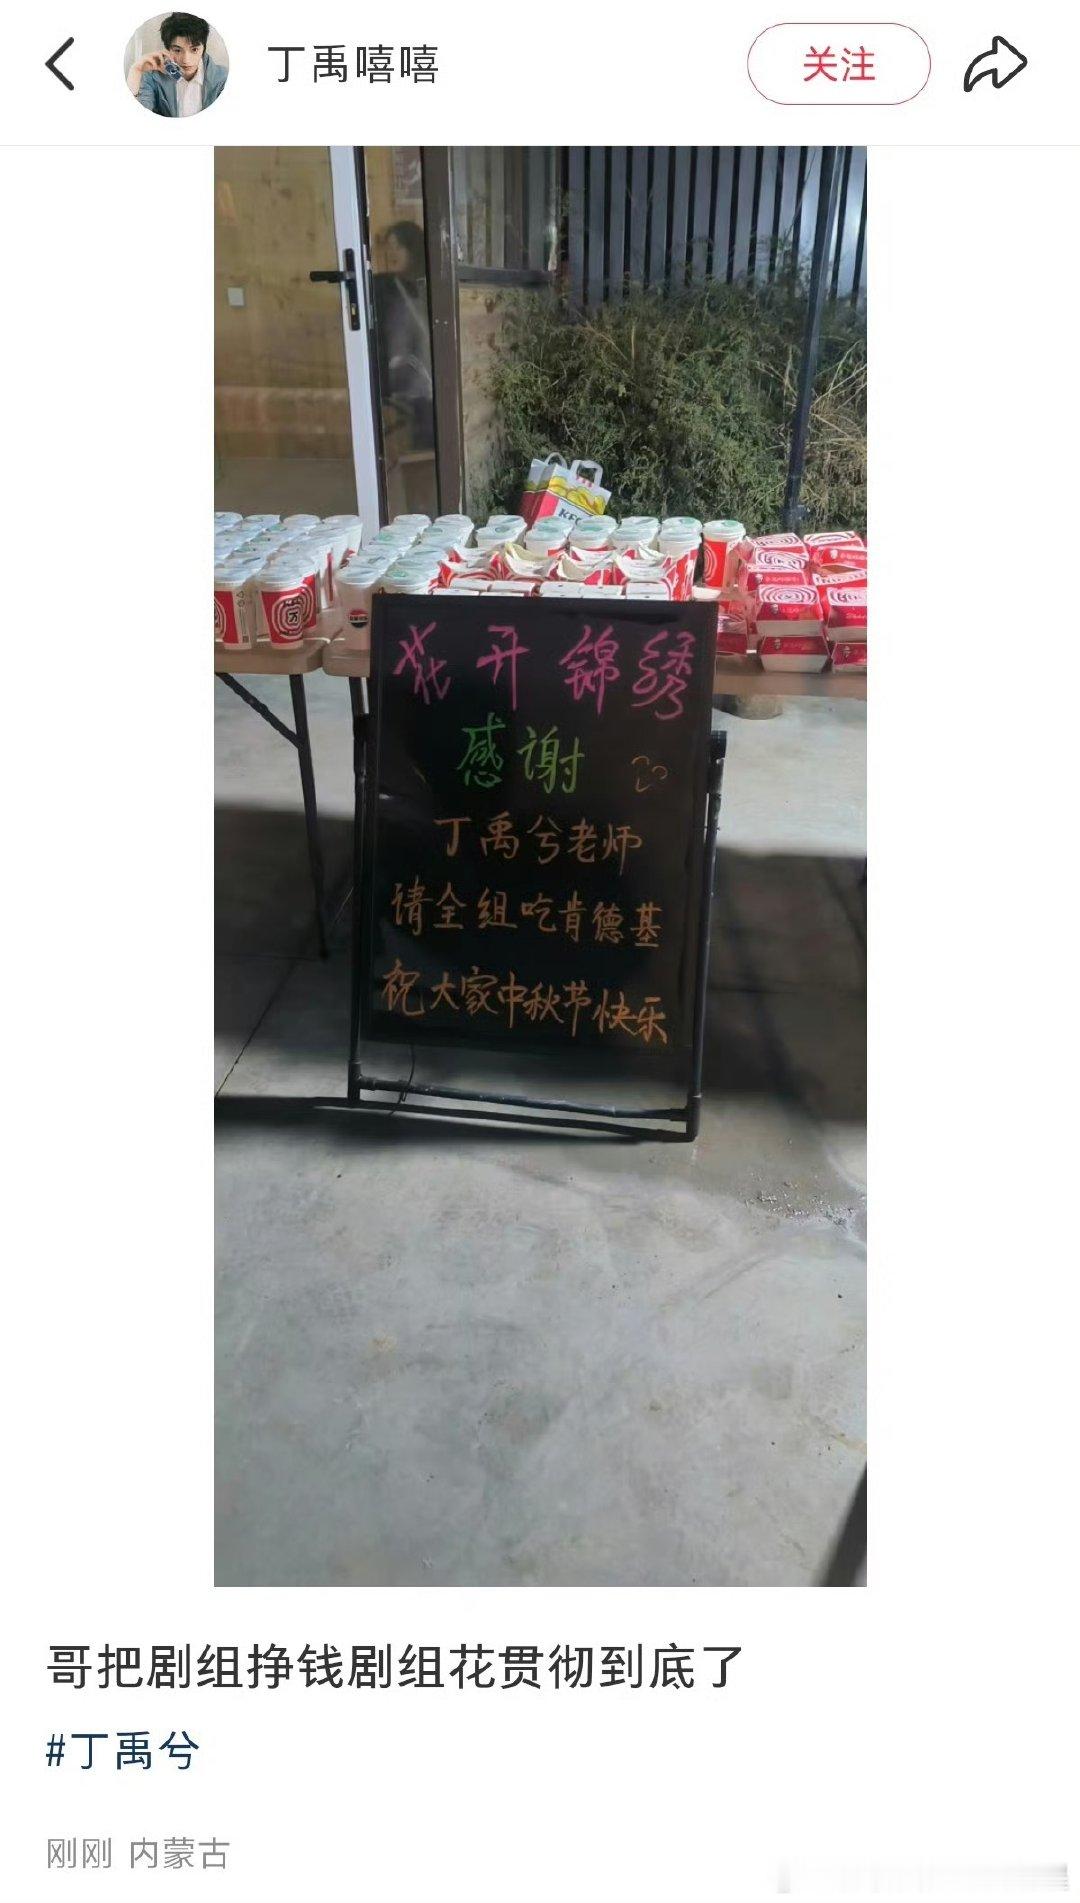 丁禹嘻嘻
关注
KFC
花开锦绣
感谢
丁禹兮老师
请全组吃肯德基
祝大家中秋节快乐
哥把剧组挣钱剧组花贯彻到底了
#丁禹兮
刚刚 内蒙古